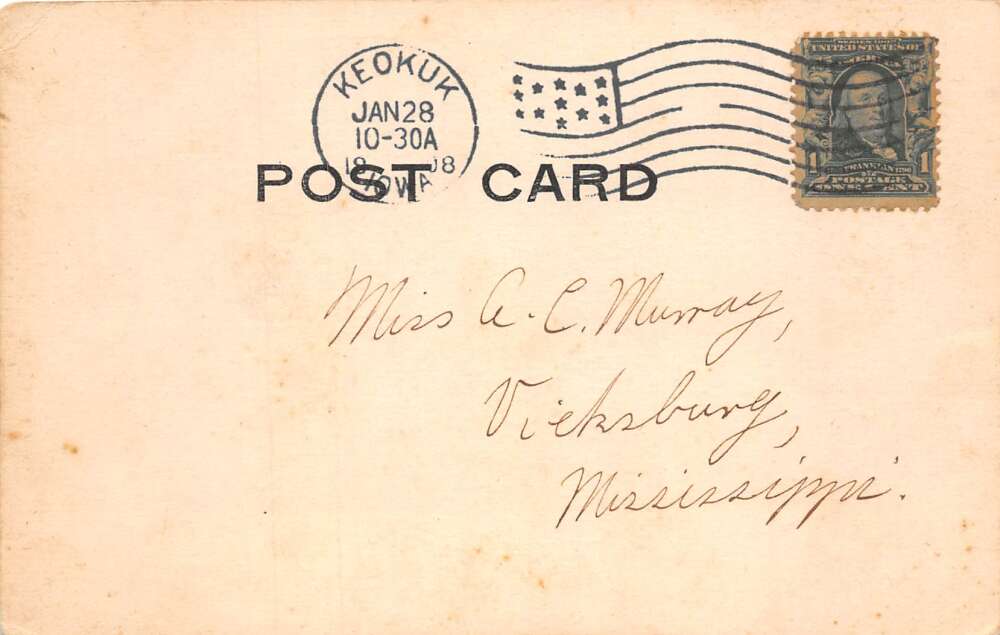 KEOKUK
JAN 28
10-30A
18 08
IOWA
POST CARD
SERIES 1902
UNITED STATES OF AMERICA
FRANKLIN 1790
1 1
POSTAGE
ONE CENT
Miss A. C. Murray,
Vicksburg,
Mississippi.